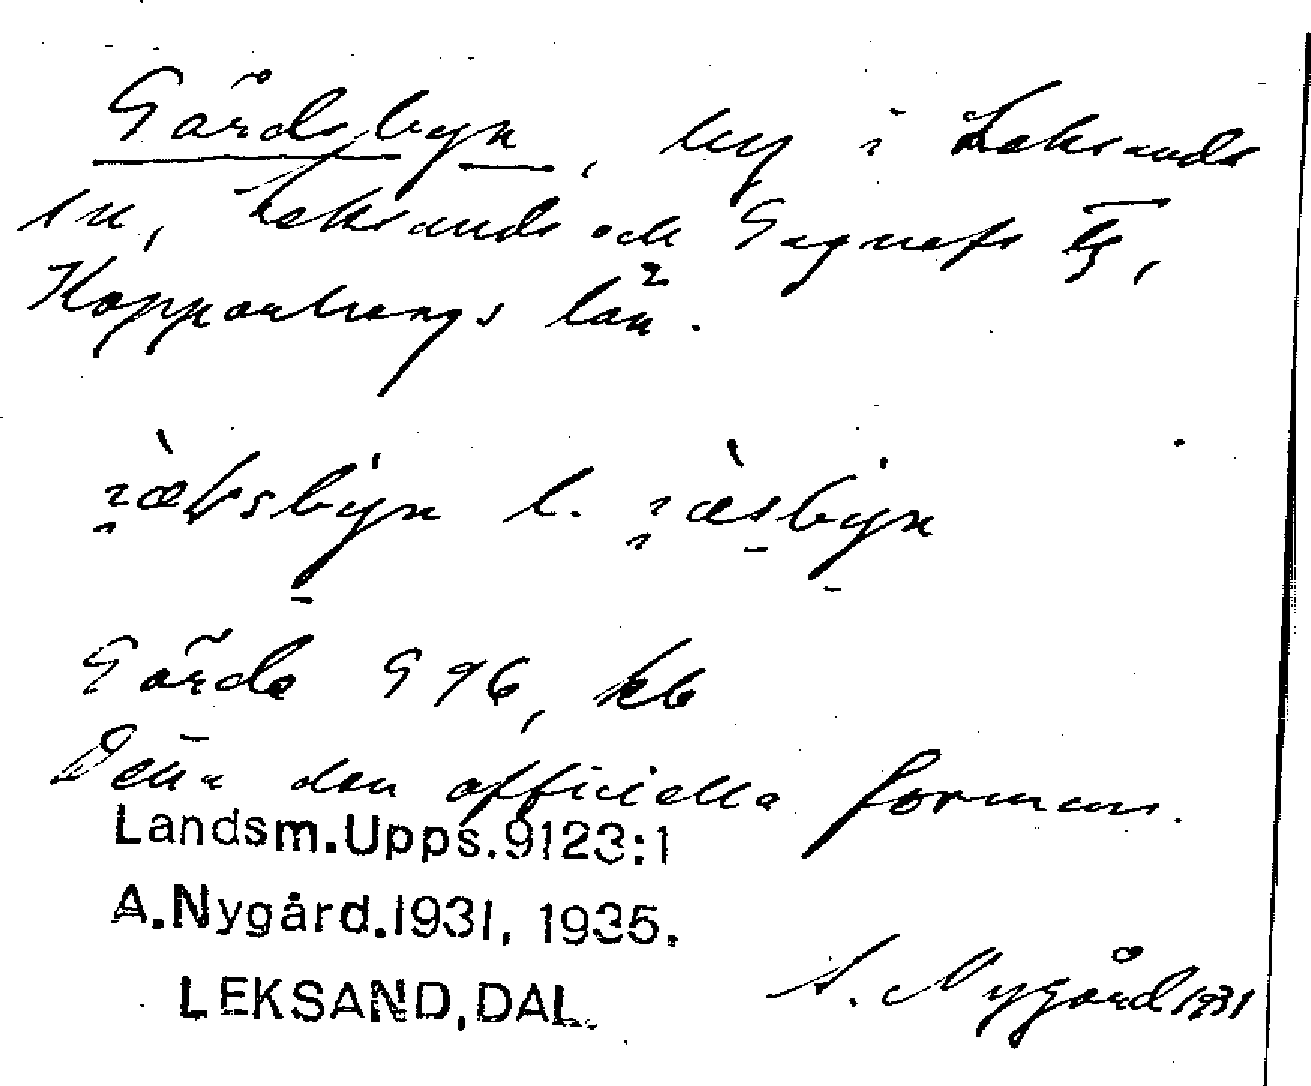 Gårdsbyn, by i Leksands
sn, Leksands och Gagnefs tg,
Kopparbergs län.
l.
Gärde G 96, kb
Denna den officiella formen.
Landsm.Upps.9123:1
A.Nygård.1931, 1935.
LEKSAND,DAL.
A. Nygård 1931